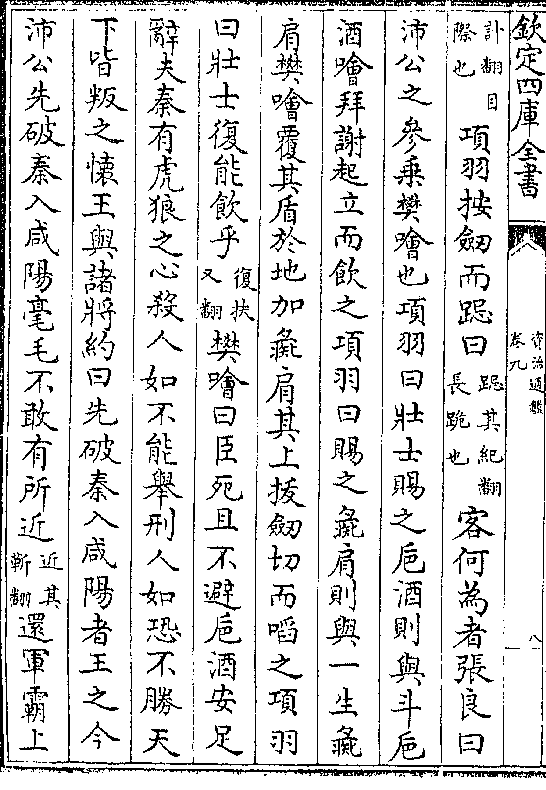 欽定四庫全書
資治通鑑
卷九
八
計翻目際也項羽按劒而跽曰跽其紀翻長跪也客何為者張良曰
沛公之參乗樊噲也項羽曰壯士賜之巵酒則與斗巵
酒噲拜謝起立而飲之項羽曰賜之彘肩則與一生彘
肩樊噲覆其盾於地加彘肩其上拔劒切而啗之項羽
曰壯士復能飲乎復扶又翻樊噲曰臣死且不避巵酒安足
辭夫秦有虎狼之心殺人如不能舉刑人如恐不勝天
下皆叛之懷王與諸將約曰先破秦入咸陽者王之今
沛公先破秦入咸陽毫毛不敢有所近近其靳翻還軍霸上